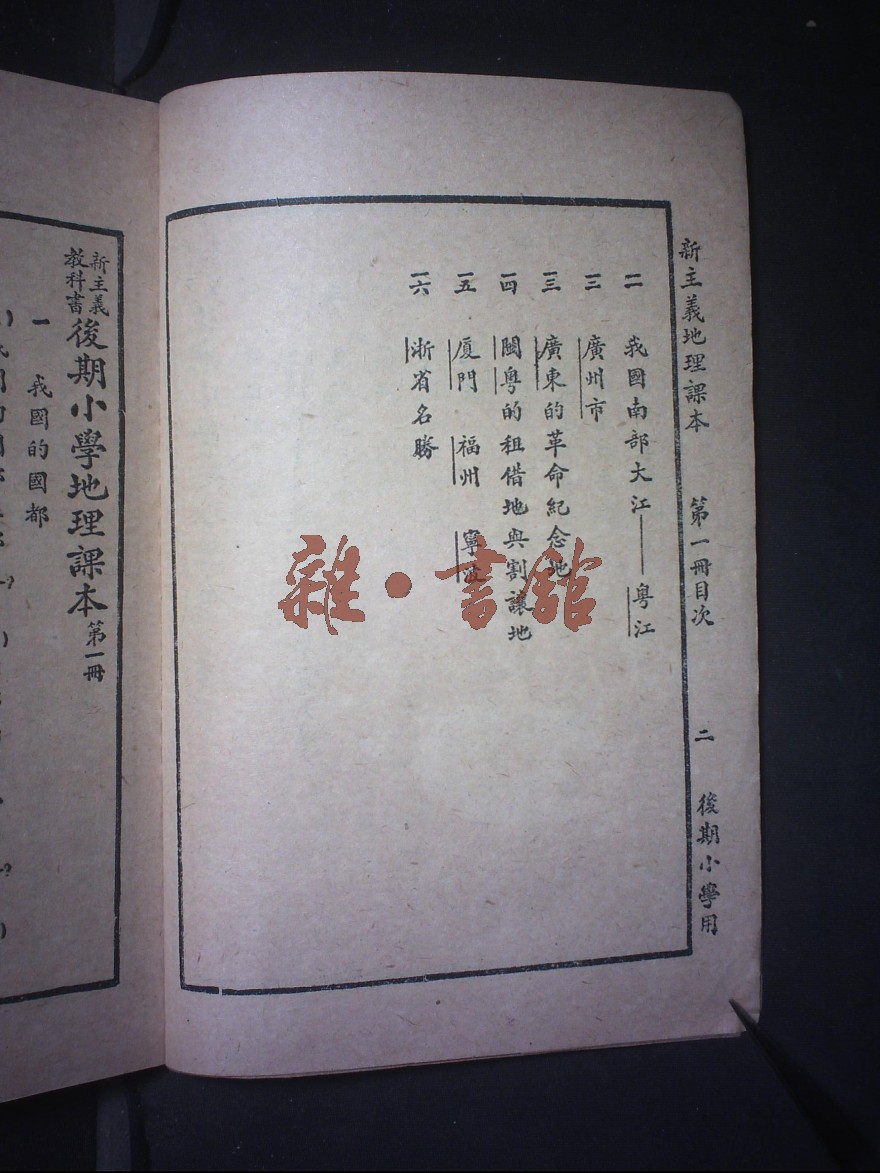 新主義地理課本 第一冊目次 二 後期小學用
一一 我國南部大江——粵江
一二 廣州市
一三 廣東的革命紀念地
一四 閩粵的租借地與割讓地
一五 廈門 福州 寧波
一六 浙省名勝
雜·書館
新主義教科書 後期小學地理課本 第一冊
一 我國的國都